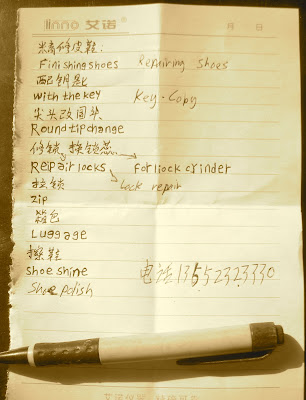 linno 艾诺 月 日
精修皮鞋:
Finishing shoes Repairing Shoes
配钥匙
with the key Key-Copy
尖头改圆头
Round tip change
修锁,换锁蕊
Repair locks for liock crinder
Lock repair
拉锁
zip
箱包
Luggage
擦鞋
shoe shine 电话 13552323330
Shoe polish